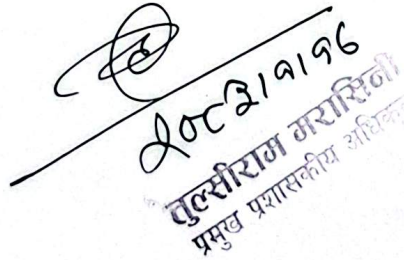 २०८३।१।१६
तुल्सीराम मरासिनी
प्रमुख प्रशासकीय अधिकृत